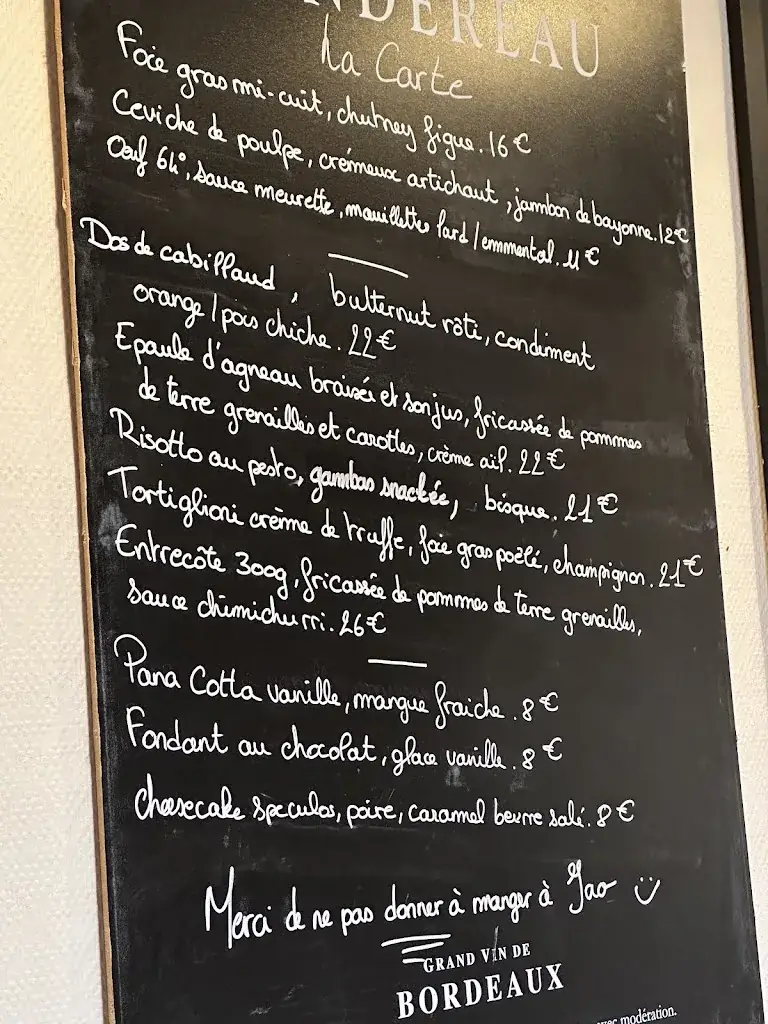 NDEREAU
La Carte
Foie gras mi-cuit, chutney figue. 16 €
Ceviche de poulpe, crémeux artichaut, jambon de bayonne. 12€
Oeuf 64°, sauce meurette, mouillettes lard / emmental. 11 €
Dos de cabillaud, butternut rôti, condiment
orange / pois chiche. 22 €
Epaule d'agneau braisée et son jus, fricassée de pommes
de terre grenailles et carottes, crème ail. 22 €
Risotto au pesto, gambas snackée, bisque. 21 €
Tortiglioni crème de truffe, foie gras poêlé, champignon. 21 €
Entrecôte 300g, fricassée de pommes de terre grenailles,
sauce chimichurri. 26€
Pana Cotta vanille, mangue fraiche. 8 €
Fondant au chocolat, glace vanille. 8 €
Cheesecake speculos, poire, caramel beurre salé. 8 €
Merci de ne pas donner à manger à Jao
GRAND VIN DE
BORDEAUX
avec modération.